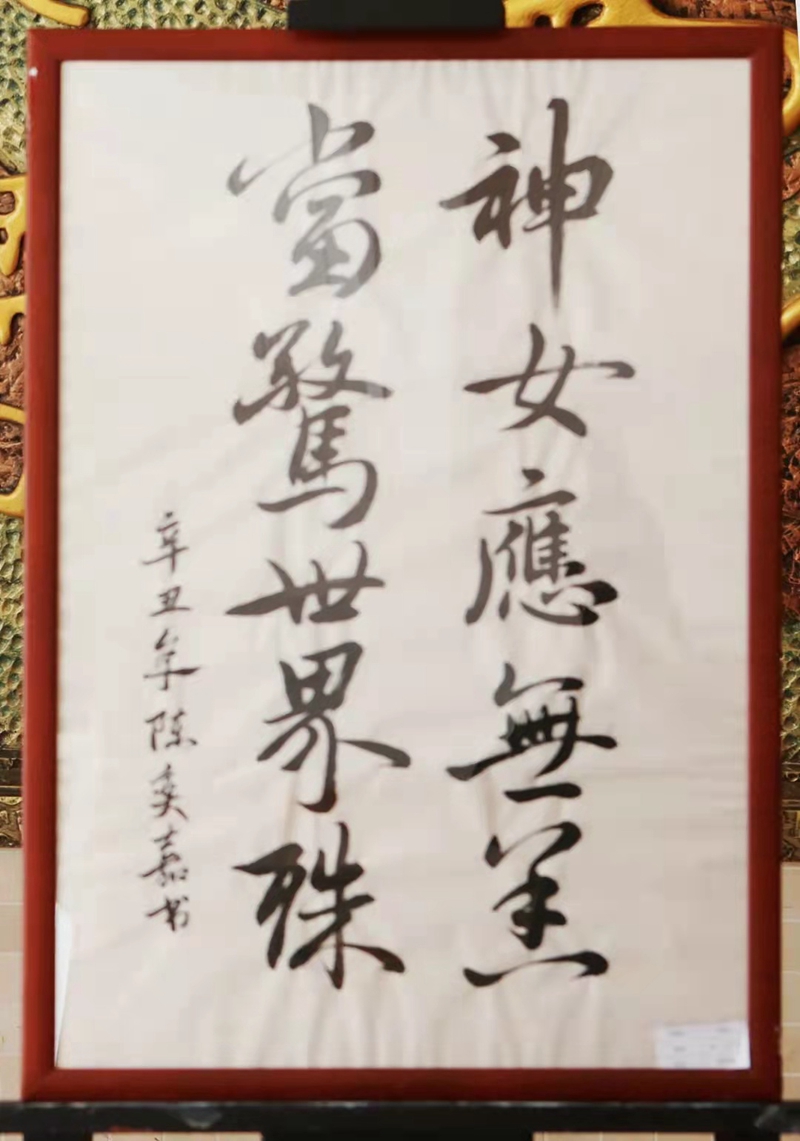 神女應無恙
當驚世界殊
辛丑年陈奕嘉书